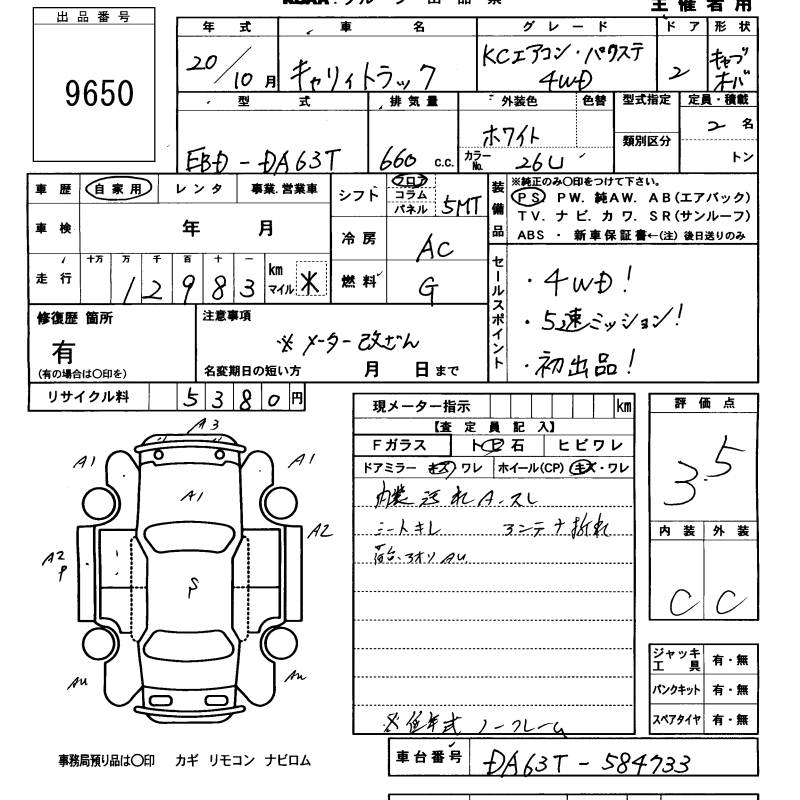 出品番号
9650
主催者用
年式 車名 グレード ドア 形状
20/10月 キャリィトラック KCエアコン・パワステ 4WD 2 キャブオーバ
型式 排気量 外装色 色替 型式指定 定員・積載
EBD-DA63T 660 c.c. ホワイト カラーNo. 26U 類別区分 2名 トン
車歴 自家用 レンタ 事業.営業車
シフト フロア コラム パネル 5MT
装備品 ※純正のみ○印をつけて下さい。
PS PW. 純AW. AB(エアバック)
TV. ナビ. カワ. SR(サンルーフ)
ABS ・ 新車保証書←(注) 後日送りのみ
車検 年 月
冷房 AC
走行 十万 万 千 百 十 一 km マイル
12983 ※
燃料 G
セールスポイント
・4WD!
・5速ミッション!
・初出品!
修復歴 箇所
有
(有の場合は○印を)
注意事項
※メーター改ざん
名変期日の短い方 月 日まで
リサイクル料 5380円
現メーター指示 km
【査定員記入】
Fガラス トビ石 ヒビワレ
ドアミラー キズ ワレ ホイール(CP) キズ・ワレ
内装汚れ A.スレ
シートキレ アンテナ折れ
荷台.アオリ AU
※低年式 ノークレーム
評価点
3.5
内装 外装
C C
ジャッキ工具 有・無
パンクキット 有・無
スペアタイヤ 有・無
A3
A1 A1
A1
A2 P
A2
S P
AU AU
事務局預り品は○印 カギ リモコン ナビロム
車台番号 DA63T-584733